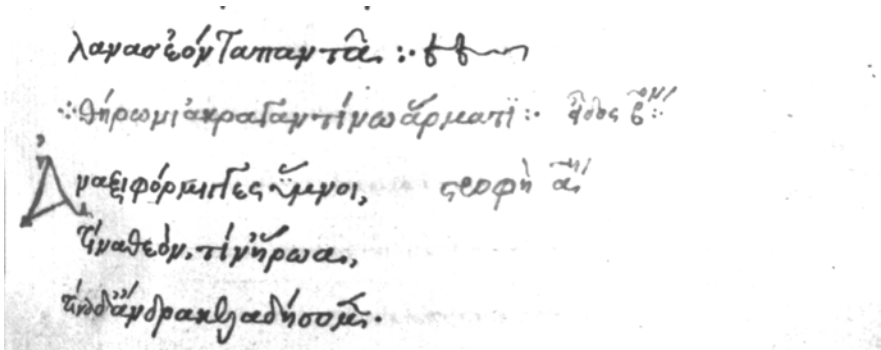 λανας ἐόντα παντᾶ :·
·:θήρωνι ἀκραγαντίνω ἅρματι :· εἶδος β:
Ἀναξιφόρμιγγες ὕμνοι, στροφὴ α
τίνα θεόν, τίν ἥρωα,
τίνα δ ἄνδρα κελαδήσομεν.